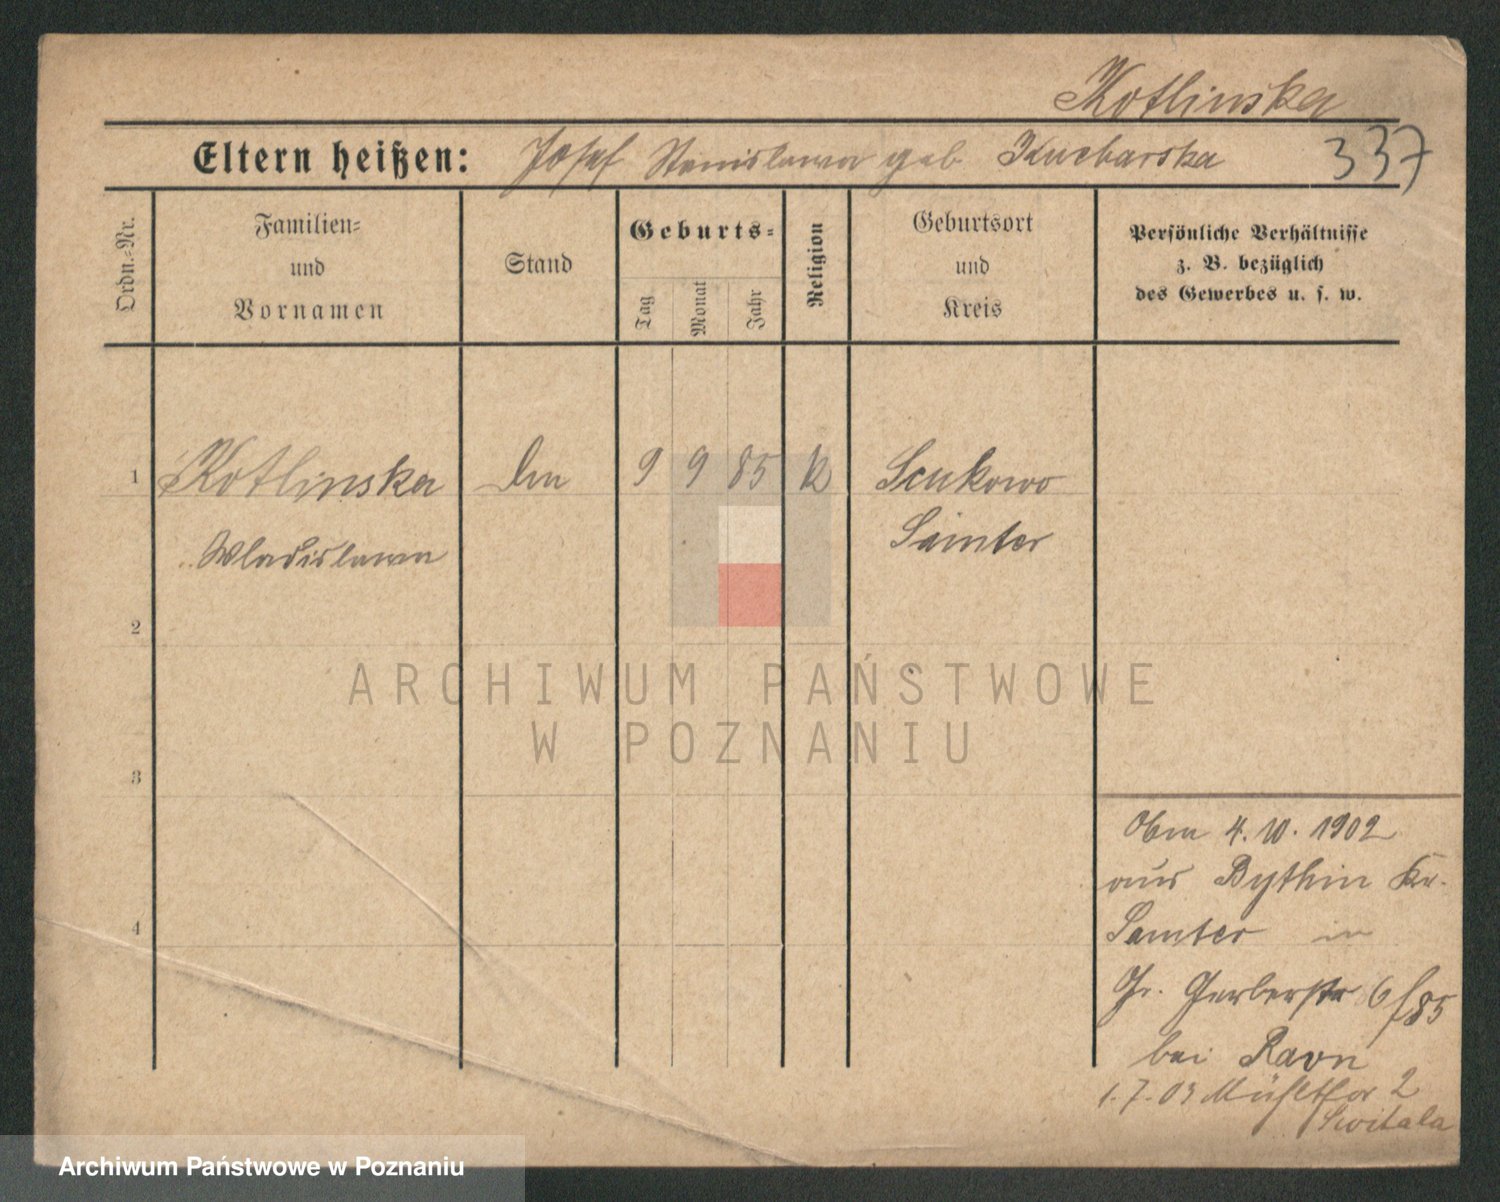 Kotlinska
Eltern heißen: Josef Stanislawa geb. Kucharska 337
Ordn.-Nr.
Familien-
und
Vornamen
Stand
Geburts-
Tag
Monat
Jahr
Religion
Geburtsort
und
Kreis
Persönliche Verhältnisse
z. B. bezüglich
des Gewerbes u. s. w.
1 Kotlinska 9 9 85 K
Samter
Wladislawa
2
3
4
4. 10. 1902
aus Bythin Kr.
Samter in
Gr. Gerberstr 6
bei
1. 7. 03 Mühltor 2
Switala
ARCHIWUM PAŃSTWOWE
W POZNANIU
Archiwum Państwowe w Poznaniu